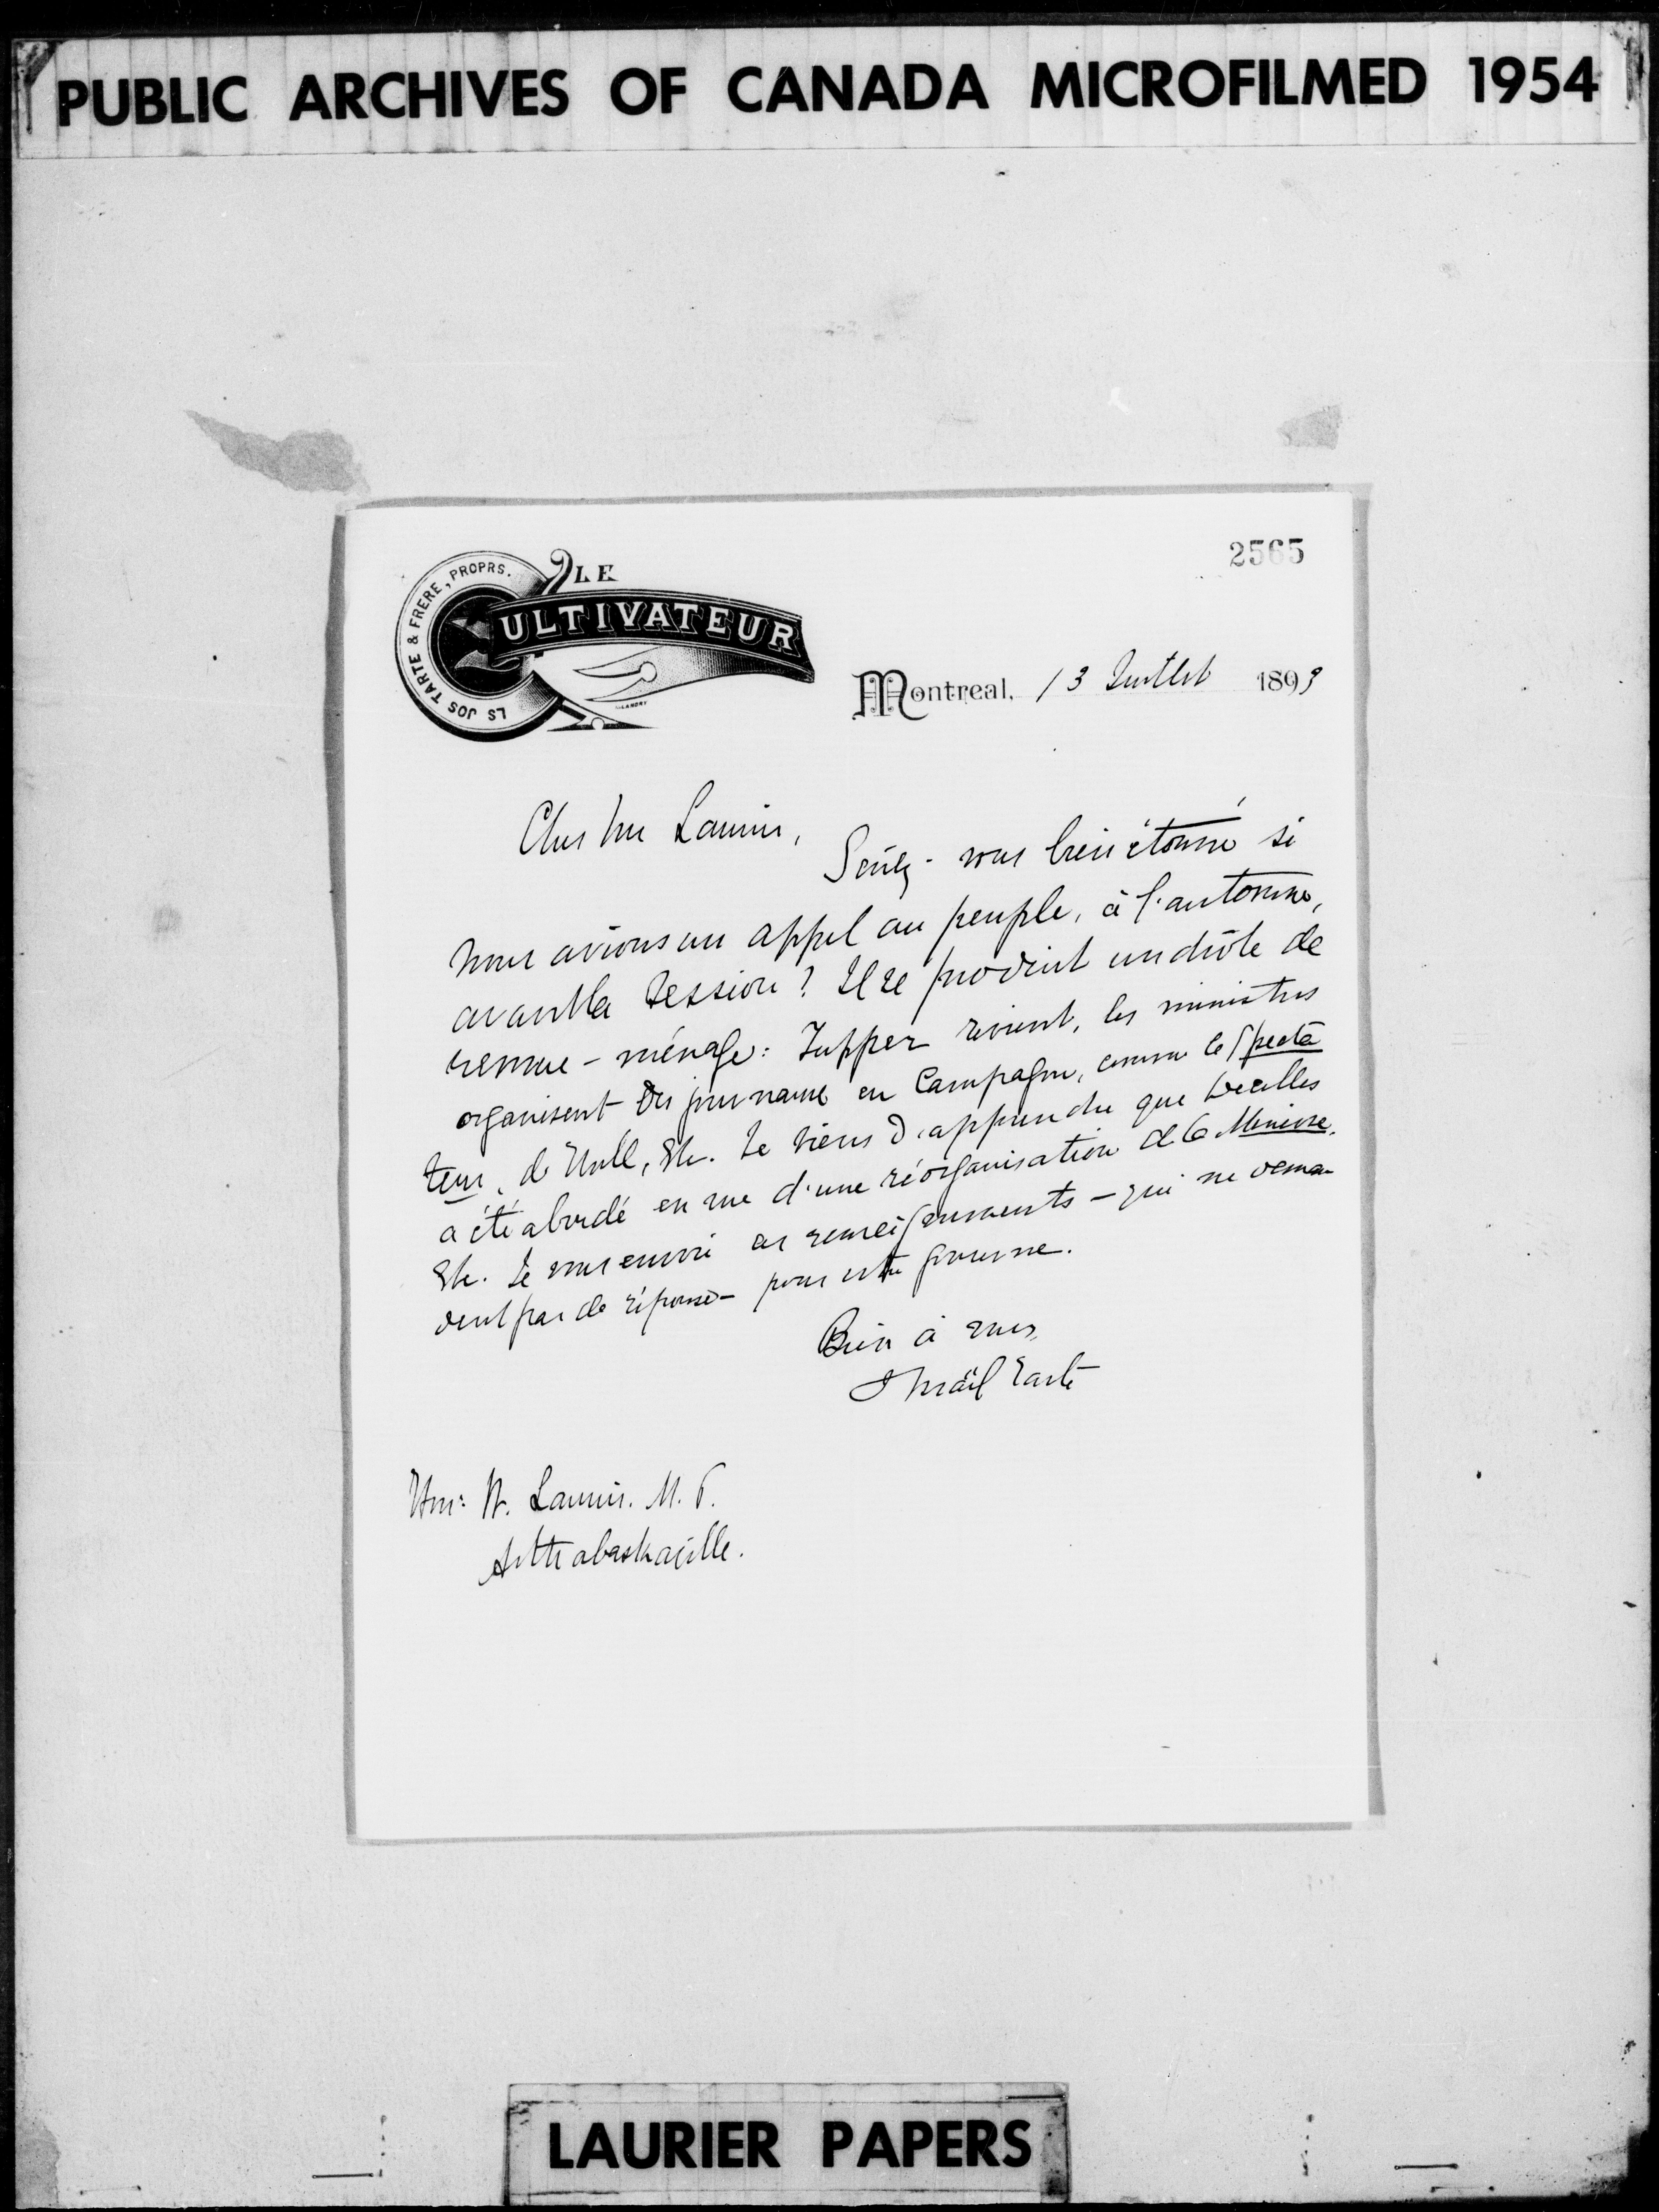 PUBLIC ARCHIVES OF CANADA MICROFILMED 1954
2565
LE
CULTIVATEUR
LS JOS TARTE & FRERE, PROPRS.
Montreal, 13 Juillet 1893
Cher Mr Laurier,
Seriez-vous bien étonné si
nous avions un appel au peuple, à l'automne,
avant la session? Il se produit un drôle de
remue-ménage: Tupper revient, les ministres
organisent des journaux en campagne, comme le Specta
teur, de Hull, etc. Je viens d'apprendre que
a été abordé en vue d'une réorganisation de la Minerve,
etc. Je vous envoie ces renseignements - qui ne deman
dent pas de réponse - pour votre gouverne.
Bien à vous,
Israël Tarte
Hon: W. Laurier. M. P.
Arthabaskaville.
LAURIER PAPERS